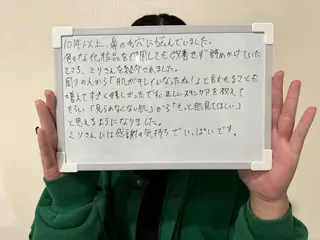 10年以上、鼻の毛穴に悩んでいました。
色々な化粧品を使用しても改善せず諦めかけていた
ところ、ミリさんを紹介されました。
周りの人から「肌がキレイになったね！」と言われることも
増えてすごく嬉しかったです。正しいスキンケアを教えて
もらい「見られたくない肌」から「もっと肌見てほしい」
と思えるようになりました。
ミリさんには感謝の気持ちでいっぱいです。